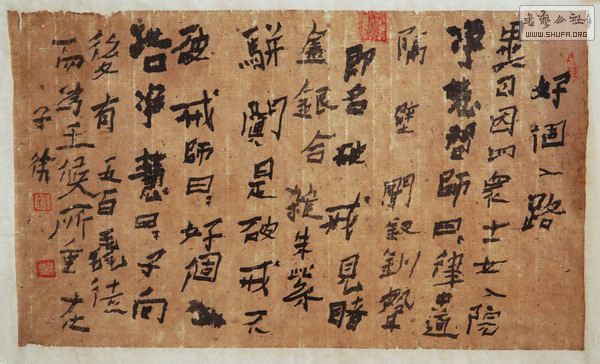 好個入路
異日因四衆士女入院
淨慧問師曰律中道
隔壁聞釵釧聲
即名破戒見睹
金銀合雜朱紫
駢闐是破戒不
破戒師曰好個入
路淨慧曰子向
後有五百毳徒
而為王侯所重在
书艺公社
WWW.SHUFA.ORG